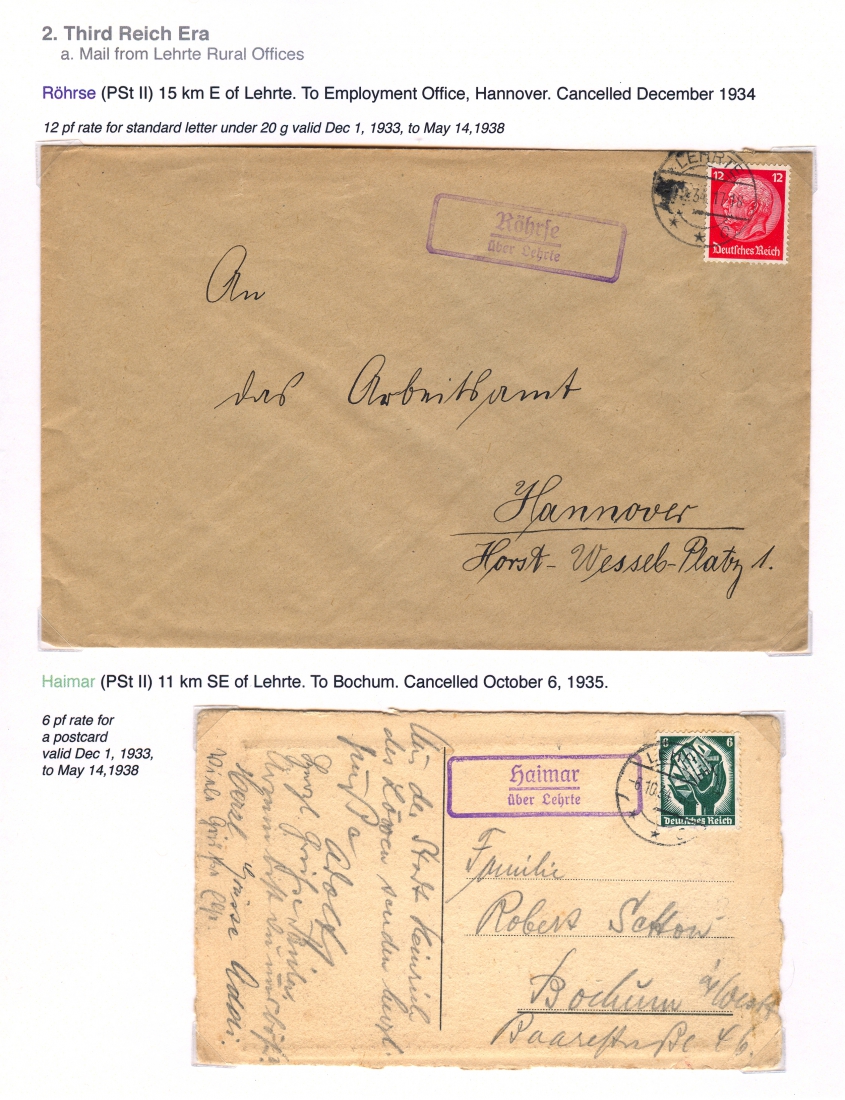 2. Third Reich Era
a. Mail from Lehrte Rural Offices
Röhrse (PSt II) 15 km E of Lehrte. To Employment Office, Hannover. Cancelled December 1934
12 pf rate for standard letter under 20 g valid Dec 1, 1933, to May 14,1938
LEHRTE
34.17-18
12 12
Deutsches Reich
Röhrse
über Lehrte
An
das Arbeitsamt
Hannover
Horst-Wessel-Platz 1.
Haimar (PSt II) 11 km SE of Lehrte. To Bochum. Cancelled October 6, 1935.
6 pf rate for
a postcard
valid Dec 1, 1933,
to May 14,1938
Aus der Stadt Heinrich
des Löwen senden herzl.
Grüße
Adolf
Herzl. Grüsse Addi.
Haimar
über Lehrte
6 6
-6.10.
Deutsches Reich
Familie
Robert
Bochum i/Westf
Baarestraße 46.